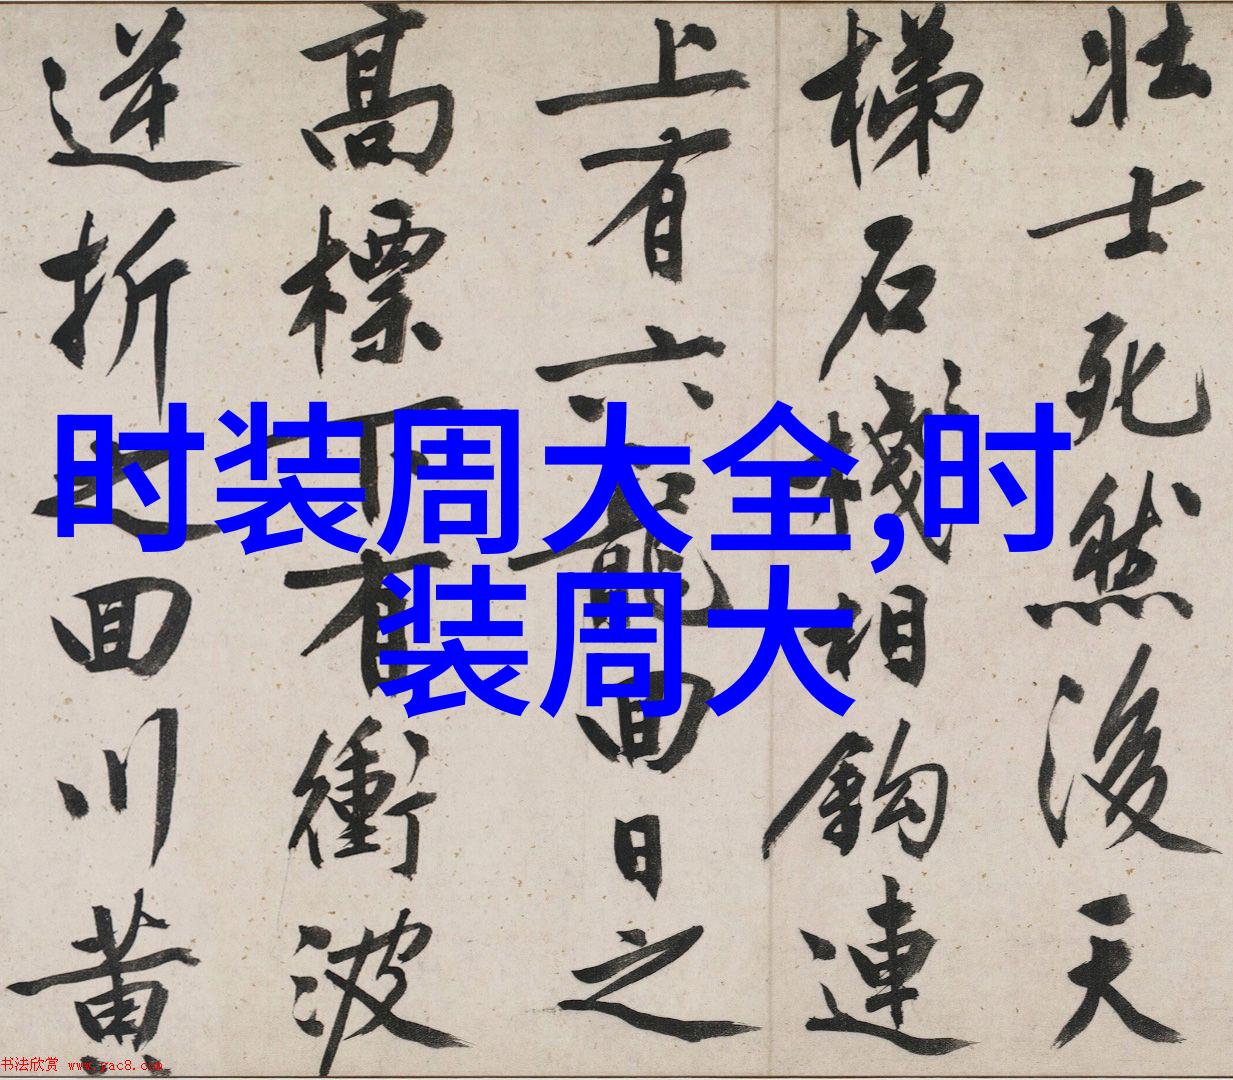 时装周大全,时
装周大
壮士死然後天
梯石棧相鈎連
上有六龍回日之
高標下有衝波
逆折之回川黄
书法欣赏 www.yac8.com